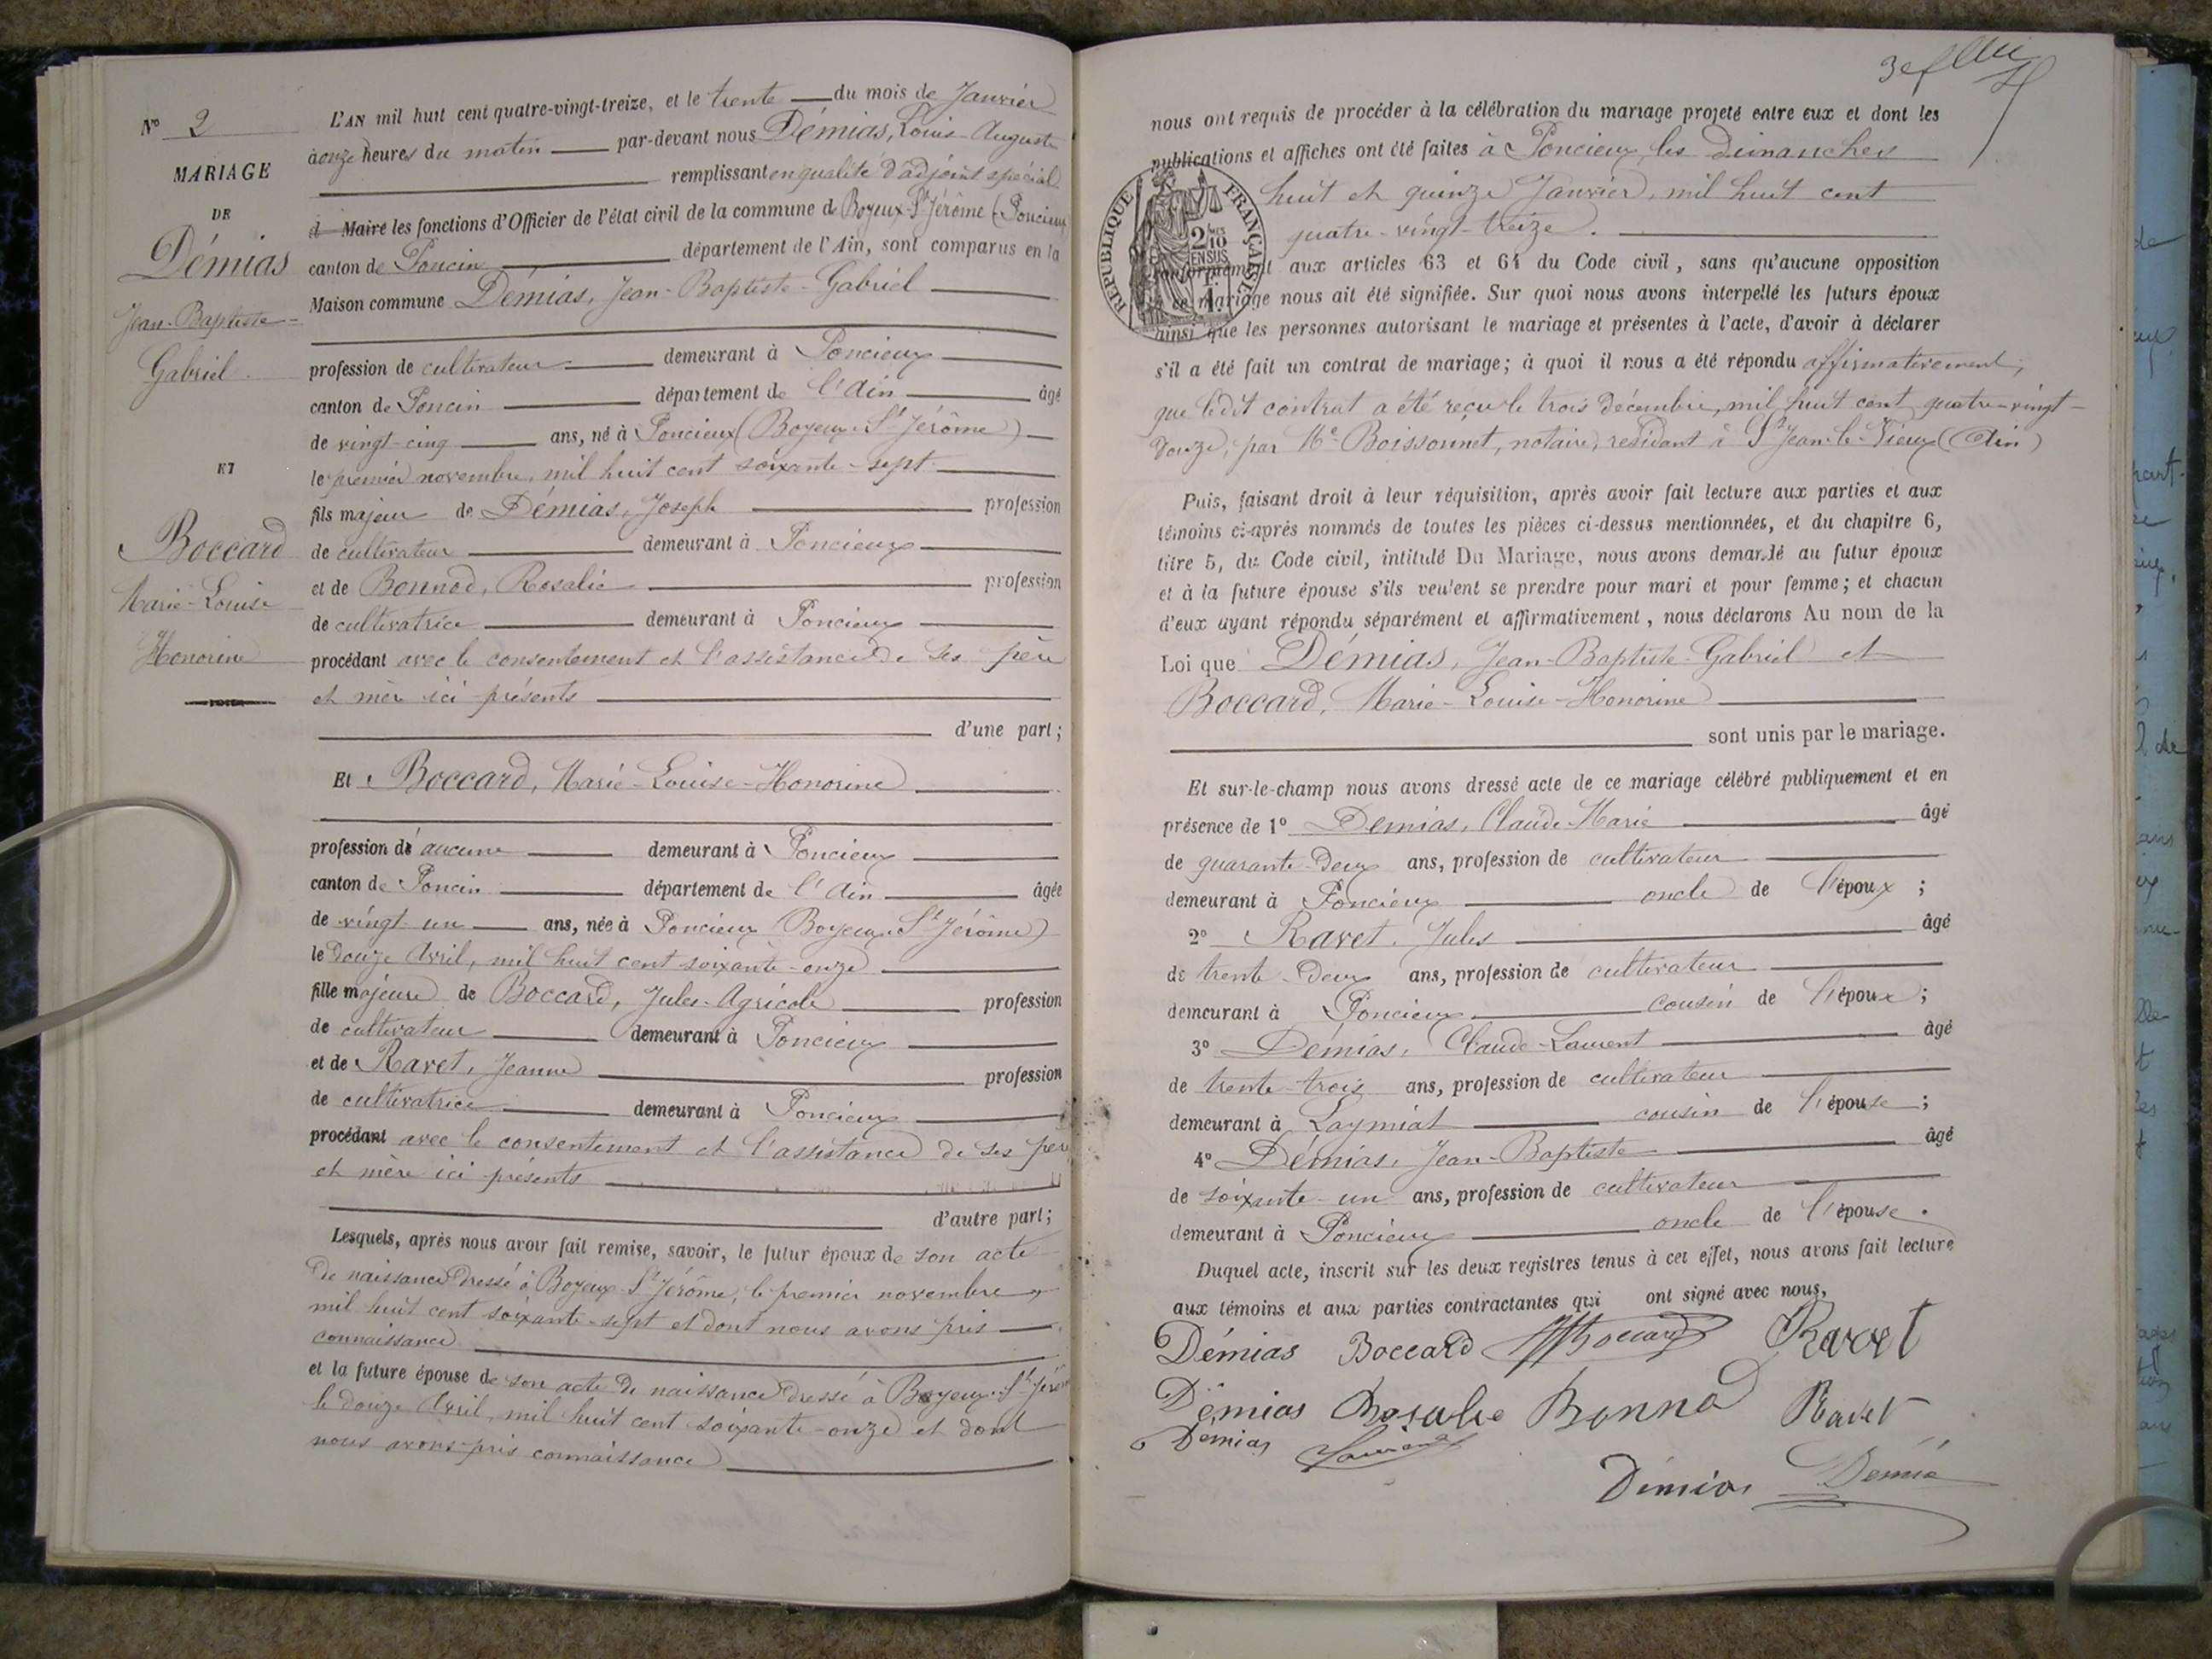 Nº 2
MARIAGE
DE
Démias
Jean-Baptiste-
Gabriel.
ET
Boccard
Marie-Louise
Honorine
L'AN mil huit cent quatre-vingt-treize, et le trente du mois de Janvier
à onze heures du matin par-devant nous Démias, Louis-Auguste
remplissant en qualité d'adjoint spécial
d Maire les fonctions d'Officier de l'état civil de la commune de Boyeux-St Jérôme (Poncieux
canton de Poncin département de l'Ain, sont comparus en la
Maison commune Démias, Jean-Baptiste-Gabriel
profession de cultivateur demeurant à Poncieux
canton de Poncin département de l'Ain âgé
de vingt-cinq ans, né à Poncieux (Boyeux-St Jérôme)
le premier novembre, mil huit cent soixante-sept.
fils majeur de Démias, Joseph profession
de cultivateur demeurant à Poncieux
et de Bonnod, Rosalie profession
de cultivatrice demeurant à Poncieux
procédant avec le consentement et l'assistance de ses père
et mère ici présents
d'une part;
Et Boccard, Marie-Louise-Honorine
profession de aucune demeurant à Poncieux
canton de Poncin département de l'Ain âgée
de vingt-un ans, née à Poncieux (Boyeux-St Jérôme)
le douze Avril, mil huit cent soixante-onze
fille majeure de Boccard, Jules-Agricole profession
de cultivateur demeurant à Poncieux
et de Ravet, Jeanne profession
de cultivatrice demeurant à Poncieux
procédant avec le consentement et l'assistance de ses père
et mère ici présents
d'autre part;
Lesquels, après nous avoir fait remise, savoir, le futur époux de son acte
de naissance dressé à Boyeux-St Jérôme, le premier novembre
mil huit cent soixante-sept et dont nous avons pris
connaissance
et la future épouse de son acte de naissance dressé à Boyeux-St Jérôme
le douze Avril, mil huit cent soixante-onze et dont
nous avons pris connaissance
nous ont requis de procéder à la célébration du mariage projeté entre eux et dont les
publications et affiches ont été faites à Poncieux, les dimanches
huit et quinze Janvier, mil huit cent
quatre-vingt-treize.
REPUBLIQUE FRANÇAISE
2/10 EN SUS
conformément aux articles 63 et 64 du Code civil, sans qu'aucune opposition
à ce mariage nous ait été signifiée. Sur quoi nous avons interpellé les futurs époux
ainsi que les personnes autorisant le mariage et présentes à l'acte, d'avoir à déclarer
s'il a été fait un contrat de mariage; à quoi il nous a été répondu affirmativement,
que ledit contrat a été reçu le trois Décembre, mil huit cent quatre-vingt-
douze, par Me Boissonnet, notaire, résidant à St Jean-le-Vieux (Ain)
Puis, faisant droit à leur réquisition, après avoir fait lecture aux parties et aux
témoins ci-après nommés de toutes les pièces ci-dessus mentionnées, et du chapitre 6,
titre 5, du Code civil, intitulé Du Mariage, nous avons demandé au futur époux
et à la future épouse s'ils veulent se prendre pour mari et pour femme; et chacun
d'eux ayant répondu séparément et affirmativement, nous déclarons Au nom de la
Loi que Démias, Jean-Baptiste-Gabriel et
Boccard, Marie-Louise-Honorine
sont unis par le mariage.
Et sur-le-champ nous avons dressé acte de ce mariage célébré publiquement et en
présence de 1º Démias, Claude-Marie âgé
de quarante-deux ans, profession de cultivateur
demeurant à Poncieux oncle de l'époux;
2º Ravet, Jules âgé
de trente-deux ans, profession de cultivateur
demeurant à Poncieux cousin de l'époux;
3º Démias, Claude-Laurent âgé
de trente-trois ans, profession de cultivateur
demeurant à Laymiat cousin de l'épouse;
4º Démias, Jean-Baptiste âgé
de soixante-un ans, profession de cultivateur
demeurant à Poncieux oncle de l'épouse.
Duquel acte, inscrit sur les deux registres tenus à cet effet, nous avons fait lecture
aux témoins et aux parties contractantes qui ont signé avec nous,
Démias Boccard Boccard Ravet
Démias Rosalie Bonnod Ravet
Demias
Démias Démia